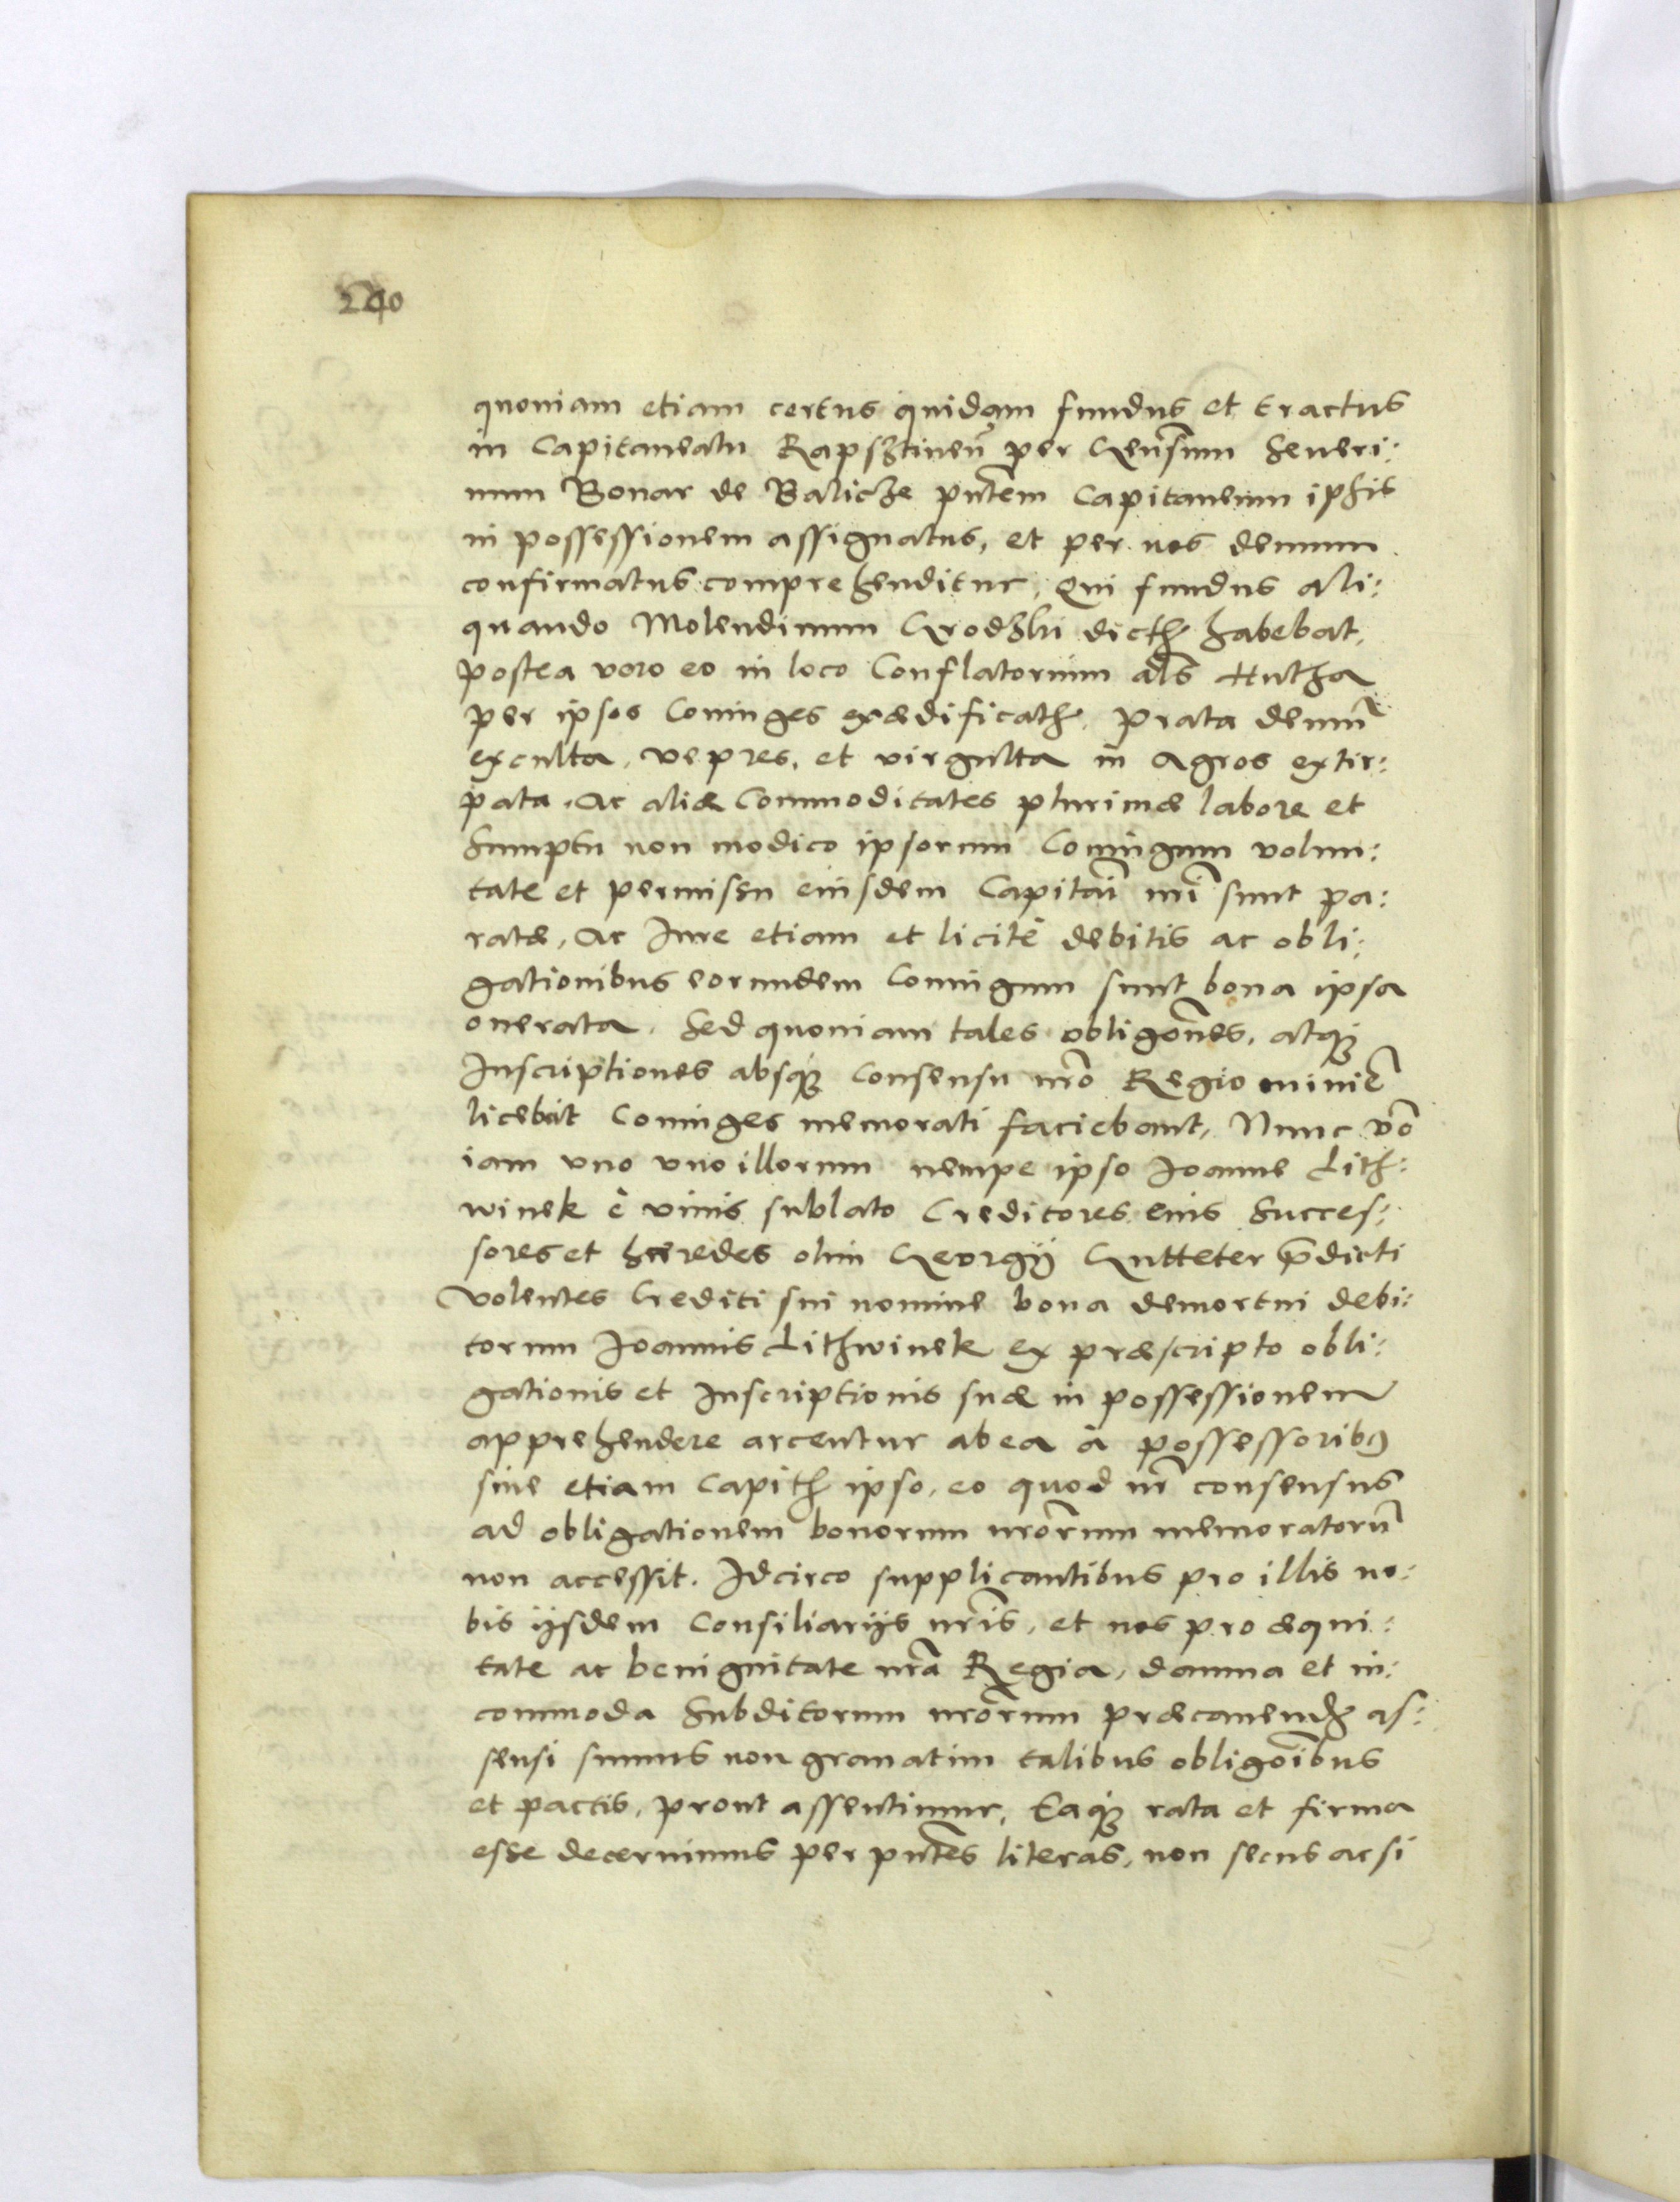 240
quoniam etiam certus quidam fundus et tractus
in Capitaneatu Rapsztineñ per Geñsum Seueri:
num Bonar de Balicze pñtem Capitaneum ipsis
in possessionem assignatus, et per nos demum
confirmatus comprehenditur, Qui fundus ali:
quando Molendinum Grodzki dicth habebat,
postea vero eo in loco Conflatorium als Hutha
per ipsos Coniuges exædificath. Prata demũ
exculta, vepres, et virgulta in Agros extir:
pata, Ac aliæ Commoditates plurimæ labore et
Sumptu non modico ipsorum Coniugum volun:
tate et permissu eiusdem Capitañi nri sunt pa:
ratæ, Ac Iure etiam et licitè debitis ac obli:
gationibus eorundem Coniugum sunt bona ipsa
onerata. Sed quoniam tales obligoñes, atq;
Inscriptiones absq; consensu nr̃o Regio minime
licebat Coniuges memorati faciebant, Nunc vo
iam vno vno illorum nempe ipso Joanne Lith:
winek è viuis sublato Creditores eius Succes:
sores et hæredes olim Georgij Gutteter p̃dicti
volentes Crediti sui nomine bona demortui debi:
torum Joannis Lithwinek ex præscripto obli:
gationis et Inscriptionis suæ in possessionem
apprehendere arcentur ab ea à possessoribꝰ
siue etiam Capith ipso, eo quod nr̃ consensus
ad obligationem bonorum nr̃orum memoratorũ
non accessit. Idcirco supplicantibus pro illis no:
bis ijsdem Consiliarijs nr̃is, et nos pro æqui:
tate ac benignitate nr̃a Regia, damna et in:
commoda Subditorum nr̃orum præcauend as:
sensi sumus non grauatim talibus obligoĩbus
et pactis, prout assentimur, Eaq; rata et firma
esse decernimus per pñtes literas, non secus ac si